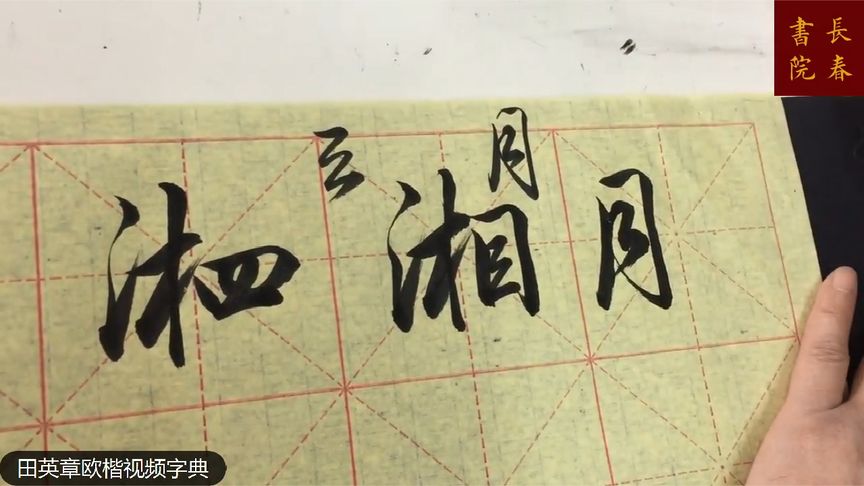 長春
書院
月
湘 湘 月
田英章欧楷视频字典